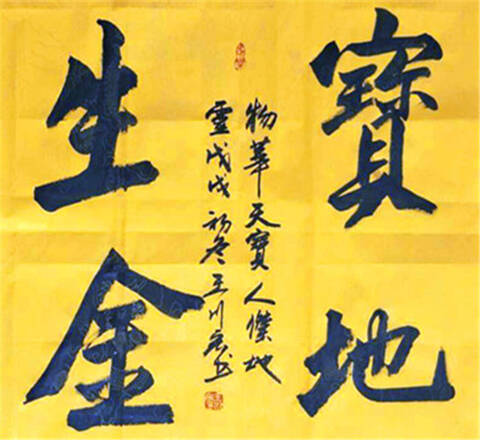 寶地
物華天寶人傑地
靈戊戌初冬王川书
生金